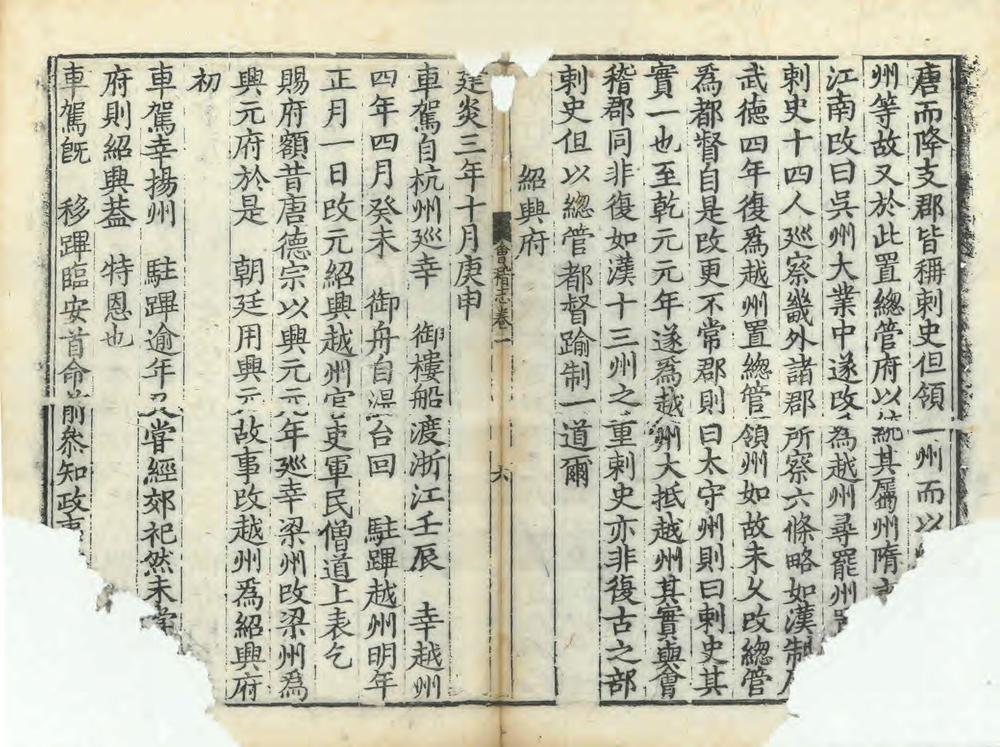 唐而降支郡皆稱刺史但領一州而以
州等故又於此置總管府以統其屬州隋
江南改曰吳州大業中遂改為越州尋罷州
刺史十四人廵察畿外諸郡所察六條略如漢制
武德四年復爲越州置總管領州如故未乆改總管
爲都督自是改更不常郡則曰太守州則曰刺史其
實一也至乾元元年遂爲越州大抵越州其實與會
稽郡同非復如漢十三州之重刺史亦非復古之部
刺史但以總管都督踰制一道爾
紹興府
會稽志卷一
六
建炎三年十月庚申
車駕自杭州廵幸 御樓船渡浙江壬辰 幸越州
四年四月癸未 御舟自溫台回 駐蹕越州明年
正月一日改元紹興越州官吏軍民僧道上表乞
賜府額昔唐德宗以興元元年廵幸梁州改梁州爲
興元府於是 朝廷用興元故事改越州爲紹興府
初
車駕幸揚州 駐蹕逾年又嘗經郊祀然未
府則紹興葢 特恩也
車駕旣 移蹕臨安首命前叅知政